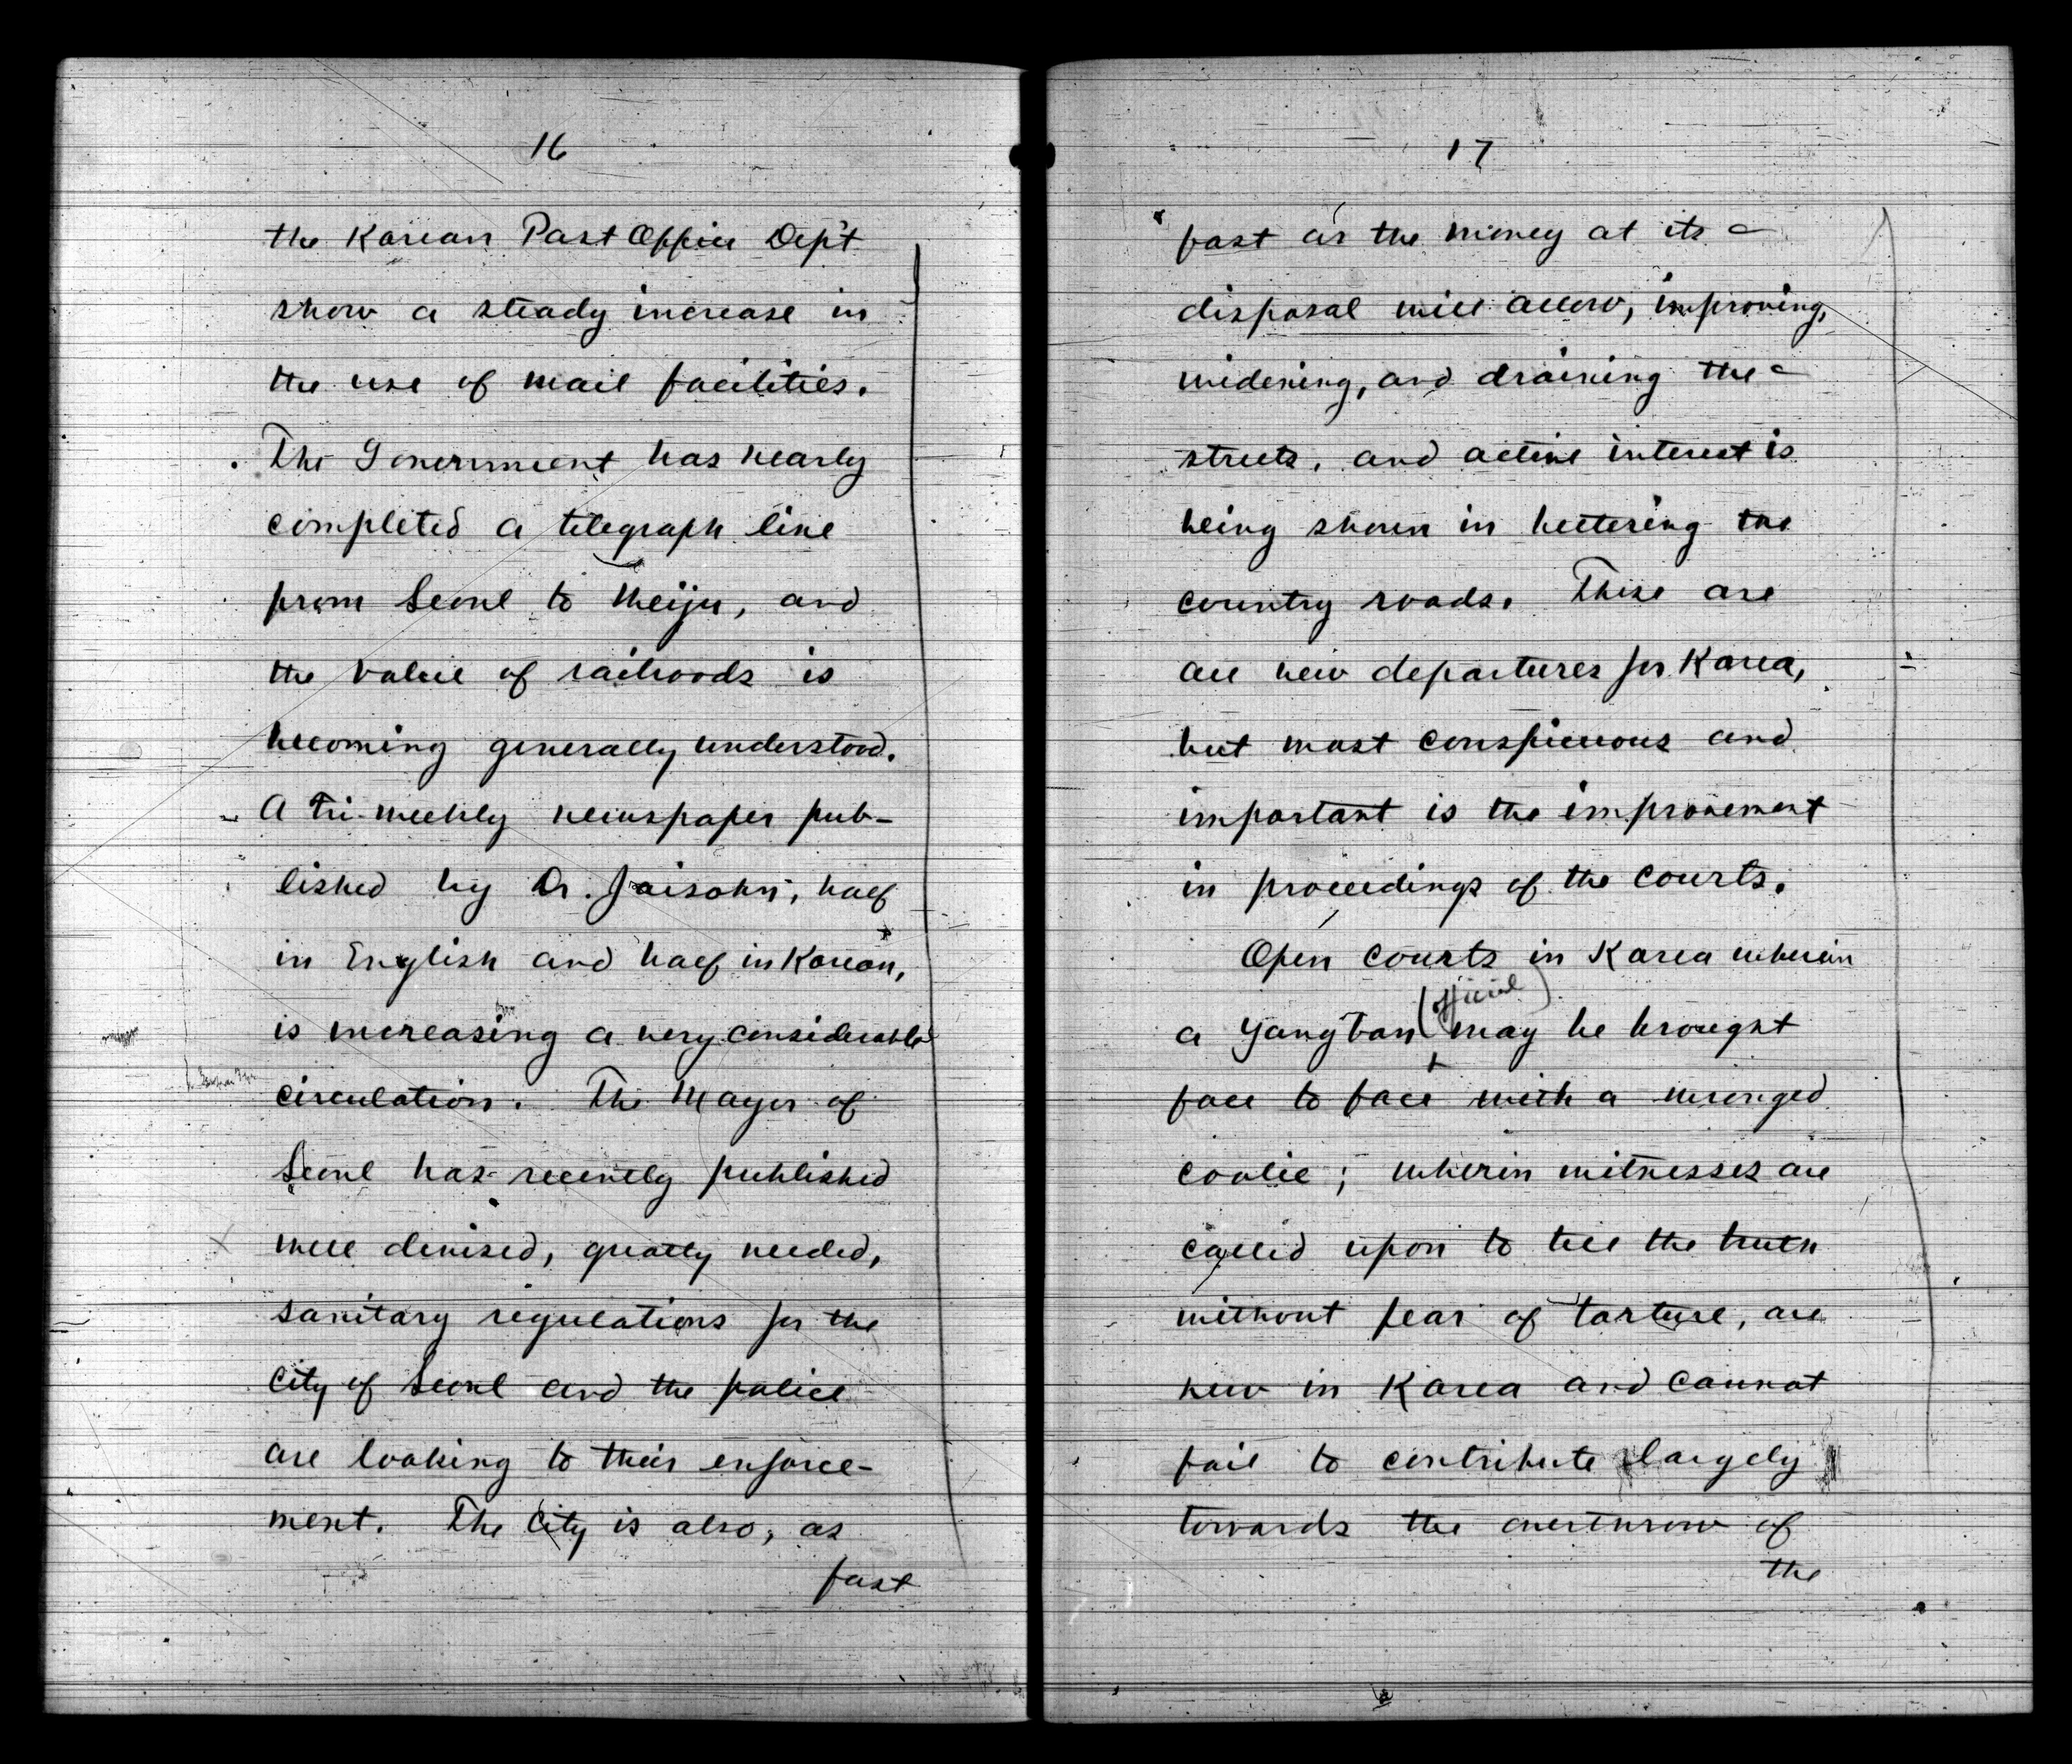 16
the Korean Post Office Dep't
show a steady increase in
the use of mail facilities.
The Government has nearly
completed a telegraph line
from Seoul to Weiju, and
the value of railroads is
becoming generally understood.
A tri-weekly newspaper pub-
lished by Dr. Jaisohn, half
in English and half in Korean,
is increasing a very considerable
circulation. The Mayor of
Seoul has recently published
well devised, greatly needed,
sanitary regulations for the
city of Seoul and the police
are looking to their enforce-
ment. The city is also, as
fast
17
fast as the money at its
disposal will allow, improving,
widening, and draining the
streets, and active interest is
being shown in bettering the
country roads. These are
all new departures for Korea,
but most conspicuous and
important is the improvement
in proceedings of the courts.
Open courts in Korea wherein
a Yangban (official) may be brought
face to face with a wronged
coolie; wherein witnesses are
called upon to tell the truth
without fear of torture, are
new in Korea and cannot
fail to contribute largely
towards the overthrow of
the